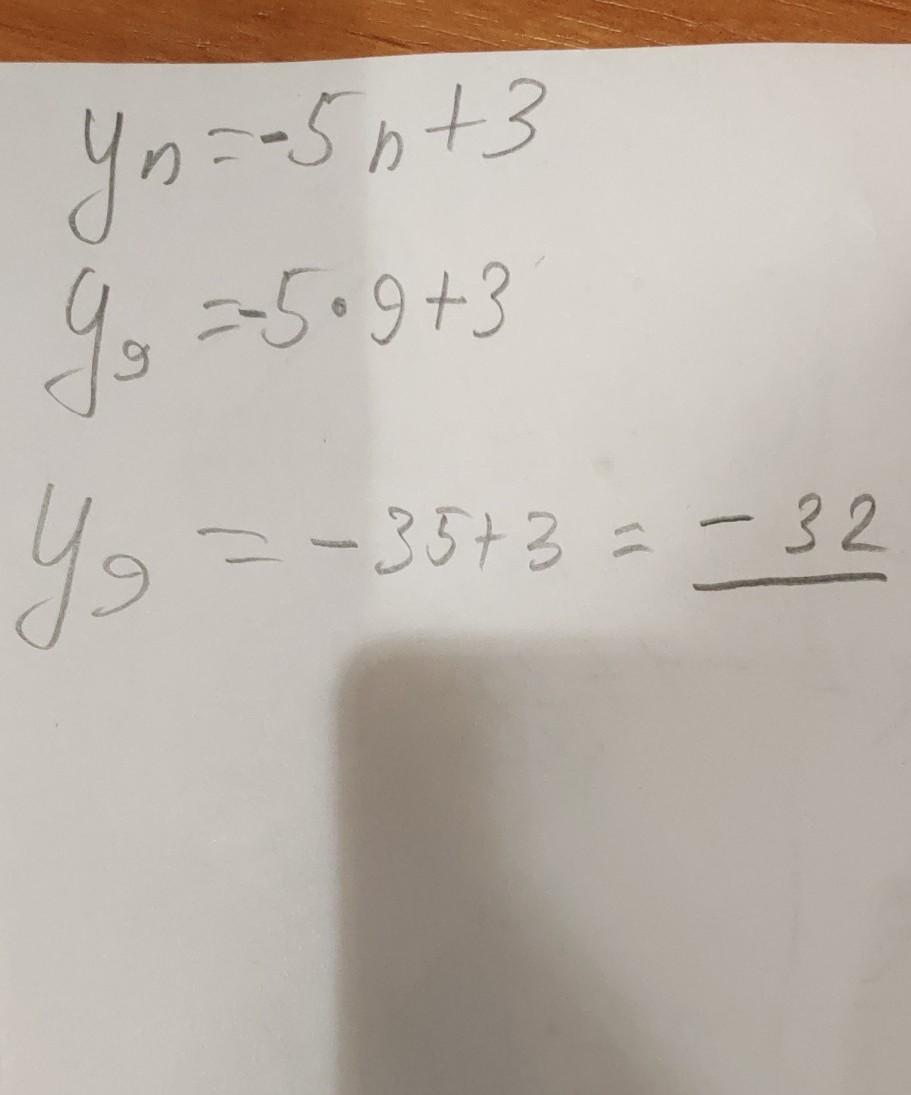 yn=-5n+3
y9=-5·9+3
y9=-35+3=-32